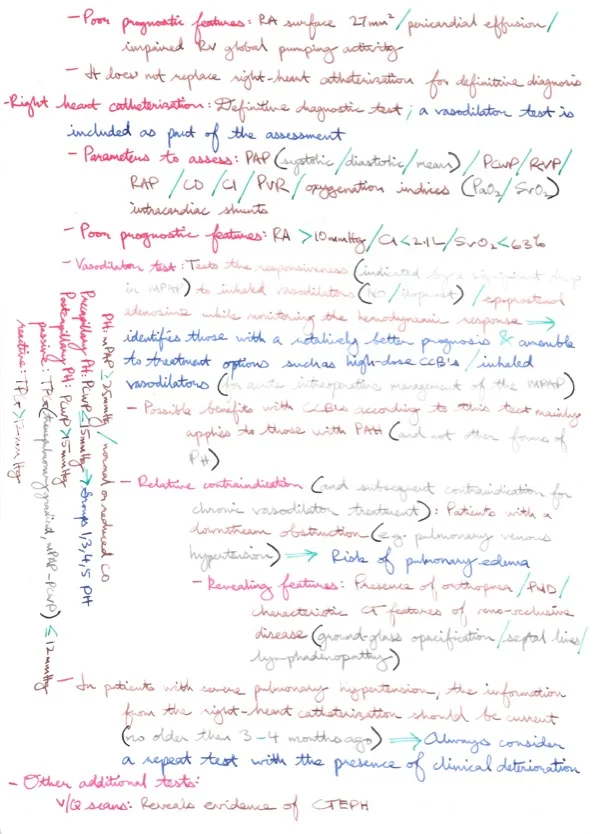 - Poor prognostic features: RA surface 27mm²/pericardial effusion/
impaired RV global pumping activity
- It does not replace right-heart catheterization for definitive diagnosis
- Right heart catheterization: Definitive diagnostic test; a vasodilator test is
included as part of the assessment
- Parameters to assess: PAP (systolic/diastolic/mean)/PCWP/RVP/
RAP/CO/CI/PVR/oxygenation indices (PaO₂/SvO₂)
intracardiac shunts
- Poor prognostic features: RA >10mmHg/CI<2.1L/SvO₂<63%
- Vasodilator test: Tests the responsiveness (indicated by a significant drop
in mPAP) to inhaled vasodilators (NO/iloprost)/epoprostenol
adenosine while monitoring the hemodynamic response ⇒
identifies those with a relatively better prognosis & amenable
to treatment options such as high-dose CCB's/inhaled
vasodilators (for acute intraoperative management of the mPAP)
- Possible benefits with CCB's according to this test mainly
applies to those with PAH (and not other forms of
PH)
- Relative contraindication (and subsequent contraindication for
chronic vasodilator treatment): Patients with a
downstream obstruction (e.g. pulmonary venous
hypertension) ⇒ Risk of pulmonary edema
- Revealing features: Presence of orthopnea/PND/
characteristic CT features of veno-occlusive
disease (ground glass opacification/septal lines/
lymphadenopathy)
PH: mPAP ≥25mmHg/normal or reduced CO
Precapillary PH: PCWP ≤15mmHg → Groups 1,3,4,5 PH
Postcapillary PH: PCWP >15mmHg
passive: TPG (transpulmonary gradient, mPAP-PCWP) ≤12mmHg
reactive: TPG >12mmHg
- In patients with severe pulmonary hypertension, the information
from the right-heart catheterization should be current
(no older than 3-4 months ago) ⇒ Always consider
a repeat test with the presence of clinical deterioration
- Other additional tests:
V/Q scans: Reveals evidence of CTEPH